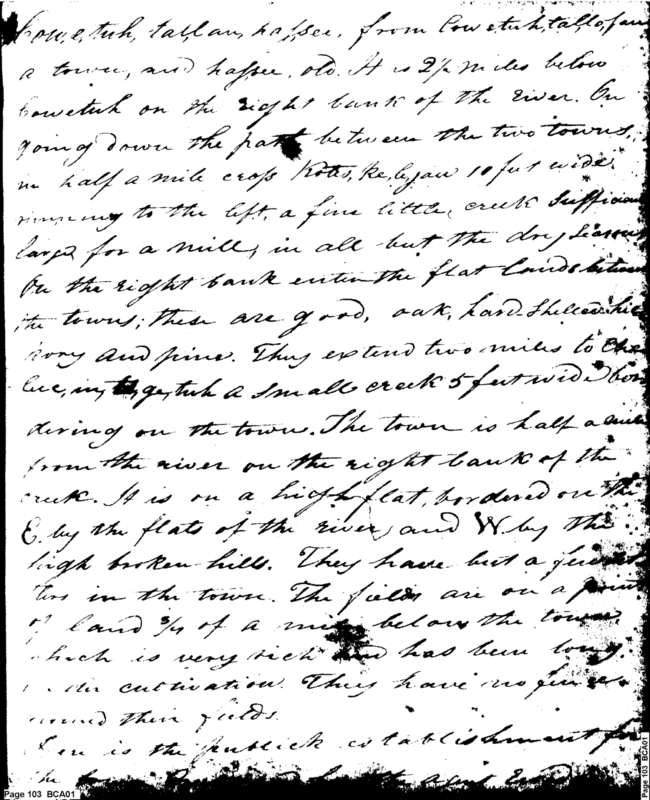 Cow,e,tuh, tal,lau, has,see, from Cowetuh, tal,lo,fau
a town, and hassee, old. It is 2½ miles below
Cowetuh on the right bank of the river. On
going down the path between the two towns,
in half a mile cross Kotes,ke,le,jau 10 feet wide
running to the left, a fine little creek sufficien
large for a mill, in all but the dry seasons
On the right bank enter the flat lands between
the towns; these are good, oak, hard shelled hic
rory and pine. They extend two miles to Che
lue,in,te,ge,tuh a small creek 5 feet wide bor
dering on the town. The town is half a mile
from the river on the right bank of the
creek. It is on a high flat, bordered on the
E. by the flats of the river, and W. by the
high broken hills. They have but a few
in the town. The fields are on a point
of land ¾ of a mile below the town,
which is very rich and has been long
under cultivation. They have no fence
around their fields.
Here is the publick establishment for
the
Page 103 BCA01
Page 103 BCA01